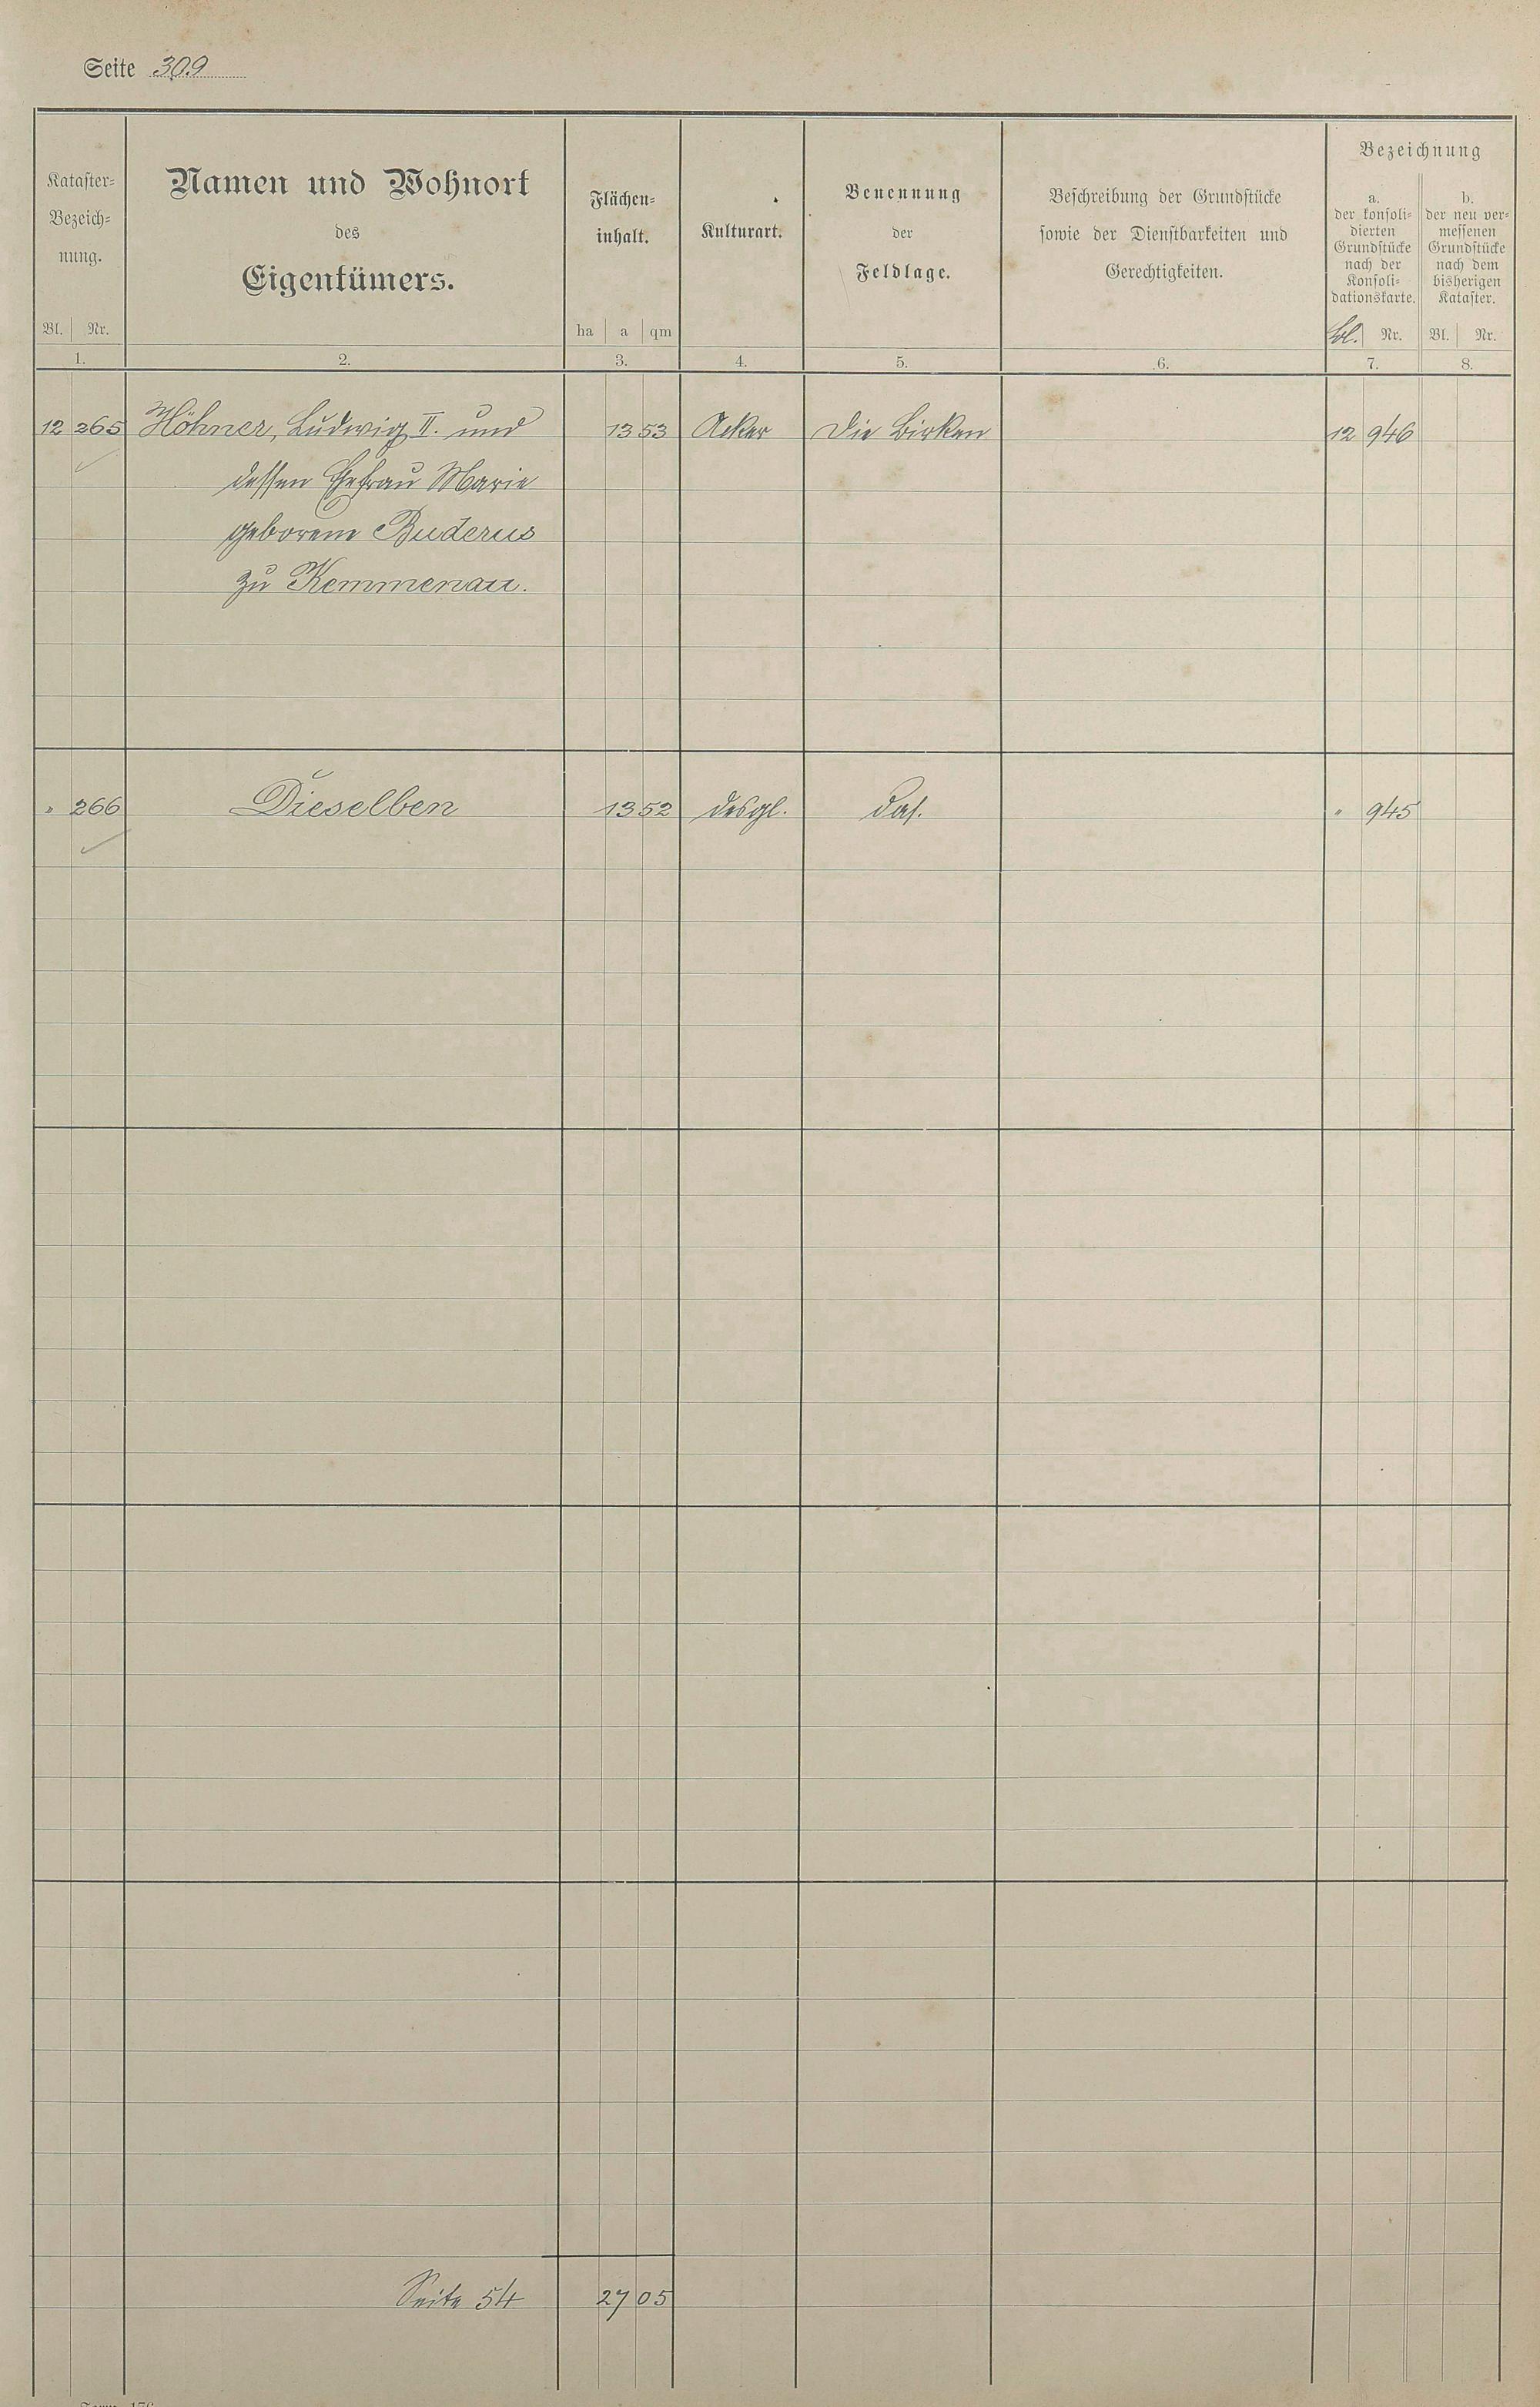 Seite 309
Kataster-
Bezeich-
nung.
Bl. Nr.
1.
Namen und Wohnort
des
Eigentümers.
2.
Flächen-
inhalt.
ha a qm
3.
Kulturart.
4.
Benennung
der
Feldlage.
5.
Beschreibung der Grundstücke
sowie der Dienstbarkeiten und
Gerechtigkeiten.
6.
Bezeichnung
a.
der konsoli-
dierten
Grundstücke
nach der
Konsoli-
dationskarte.
Nr.
7.
b.
der neu ver-
messenen
Grundstücke
nach dem
bisherigen
Kataster.
Bl. Nr.
8.
12 265 Höhner, Ludwig II. und 13 53 Acker Die Birken 12 946
dessen Ehefrau Marie
geborene Buderus
zu Kemmenau.
" 266 Dieselben 13 52 desgl. das. " 945
Seite 54 27 05